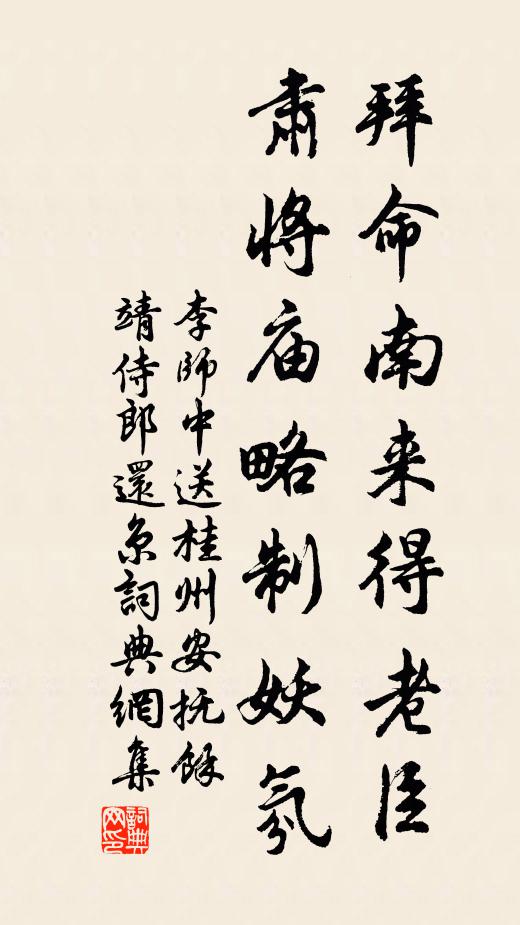 拜命南来得老臣
肃將庙略制妖氛
李師中送桂州安抚餘
靖侍郎還京詞典網集
詞典网印